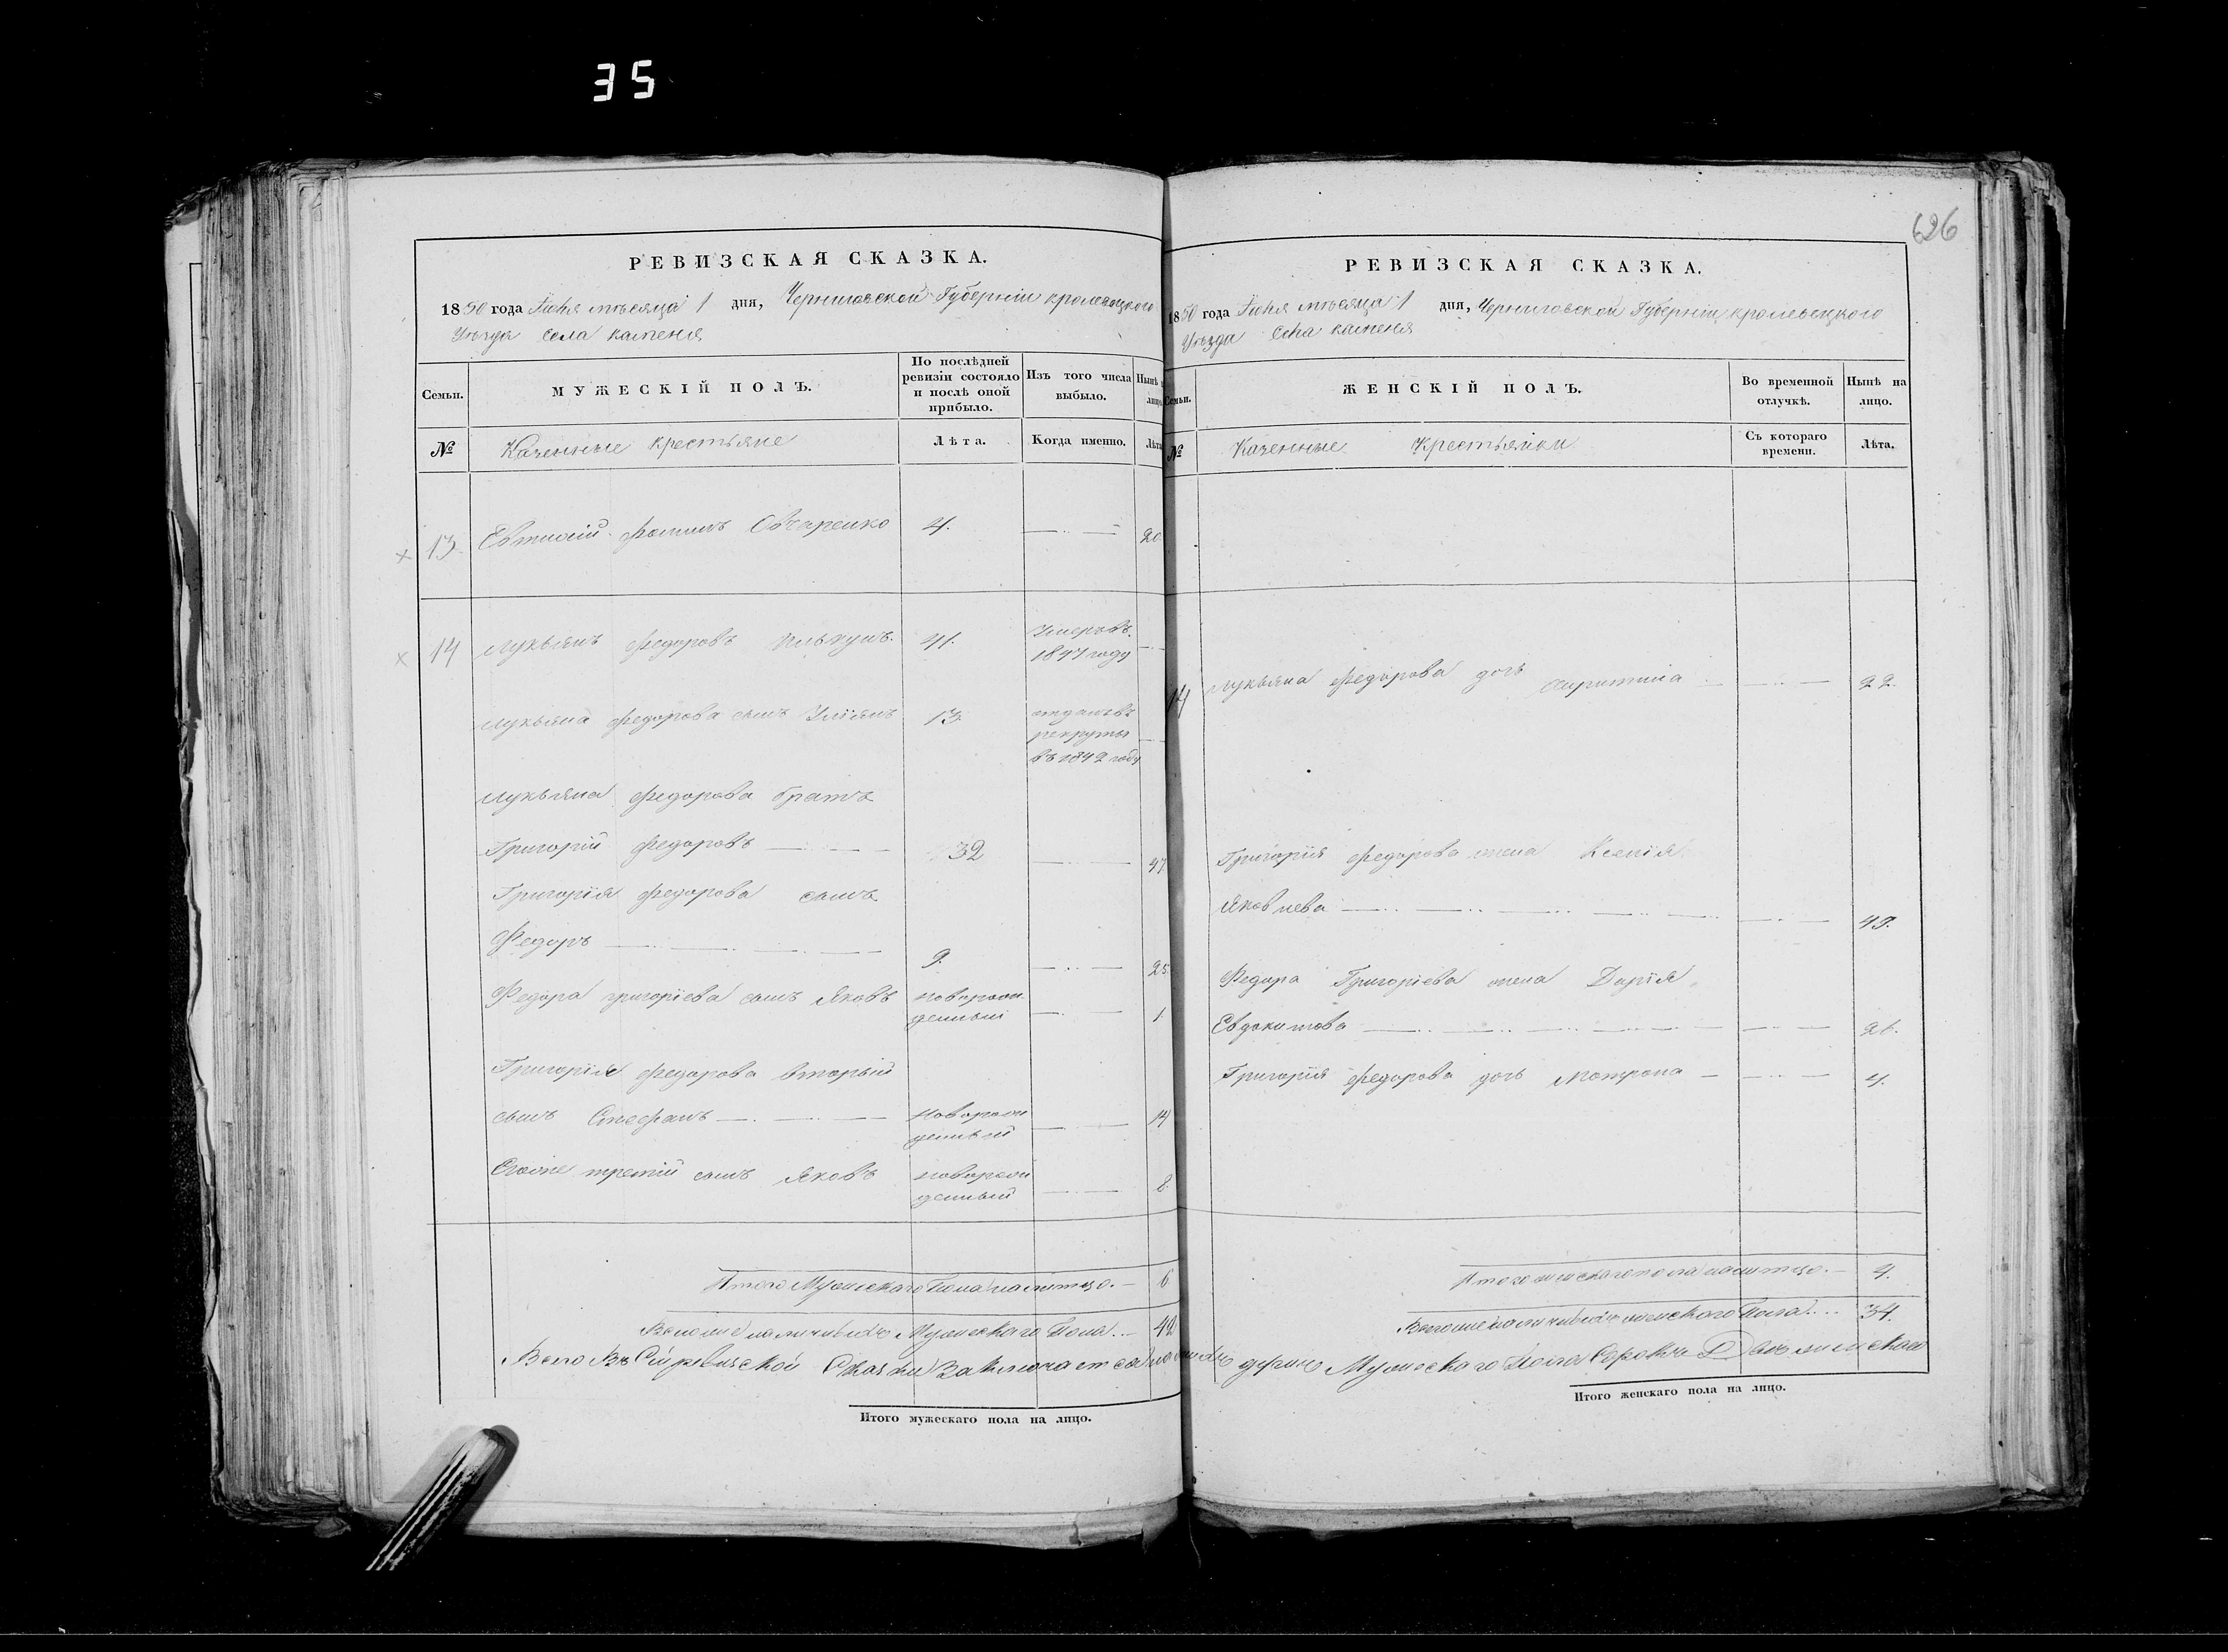 35
626
РЕВИЗСКАЯ СКАЗКА.
1850 года Іюня мѣсяца 1 дня, Черниговской Губерніи кролевецкого
Уѣзда села каменя
Семьи.
МУЖЕСКІЙ ПОЛЪ.
По послѣдней ревизіи состояло и послѣ оной прибыло.
Изъ того числа выбыло.
Нынѣ
лицо
№
Казенные крестьяне
Лѣта.
Когда именно.
Лѣта
13 Евтихій Фоминъ Овчаренко 4. 20.
14 Лукьянъ Федоровъ 41. Умеръ въ
1847 году
Лукьяна Федорова сынъ Уліянъ 13. отданъ въ
рекруты
въ 1842 году
Лукьяна Федорова братъ
Григорій Федоровъ 32 47.
Григорія Федорова сынъ
Федоръ 9. 25.
Федора григоріева сынъ Яковъ новорож
денный 1.
Григорія Федорова вторый
сынъ Стефанъ новорож
денный 14
третій сынъ Яковъ новорож
денный 8.
Итого Мужескаго Пола на лицо. 6
Мужескаго Пола 42
Всего Въ Сій ревизской Сказки Заключается
Итого мужескаго пола на лицо.
РЕВИЗСКАЯ СКАЗКА.
1850 года Іюня мѣсяца 1 дня, Черниговской Губерніи кролевецкого
Уѣзда Села каменя
Семьи.
ЖЕНСКІЙ ПОЛЪ.
Во временной отлучкѣ.
Нынѣ на лицо.
№
Казенные Крестьянки
Съ котораго времени.
Лѣта.
14 Лукьяна Федорова дочь 22.
Григорія Федорова жена Ксенія
Яковлева 49.
Федора Григоріева жена Дарія
Евдокимова 21.
Григорія Федорова дочь Мотрона 4.
Итого женскаго пола на лицо. 4.
женскаго Пола 34.
душъ Мужескаго Пола Сорокъ Два женскаго
Итого женскаго пола на лицо.